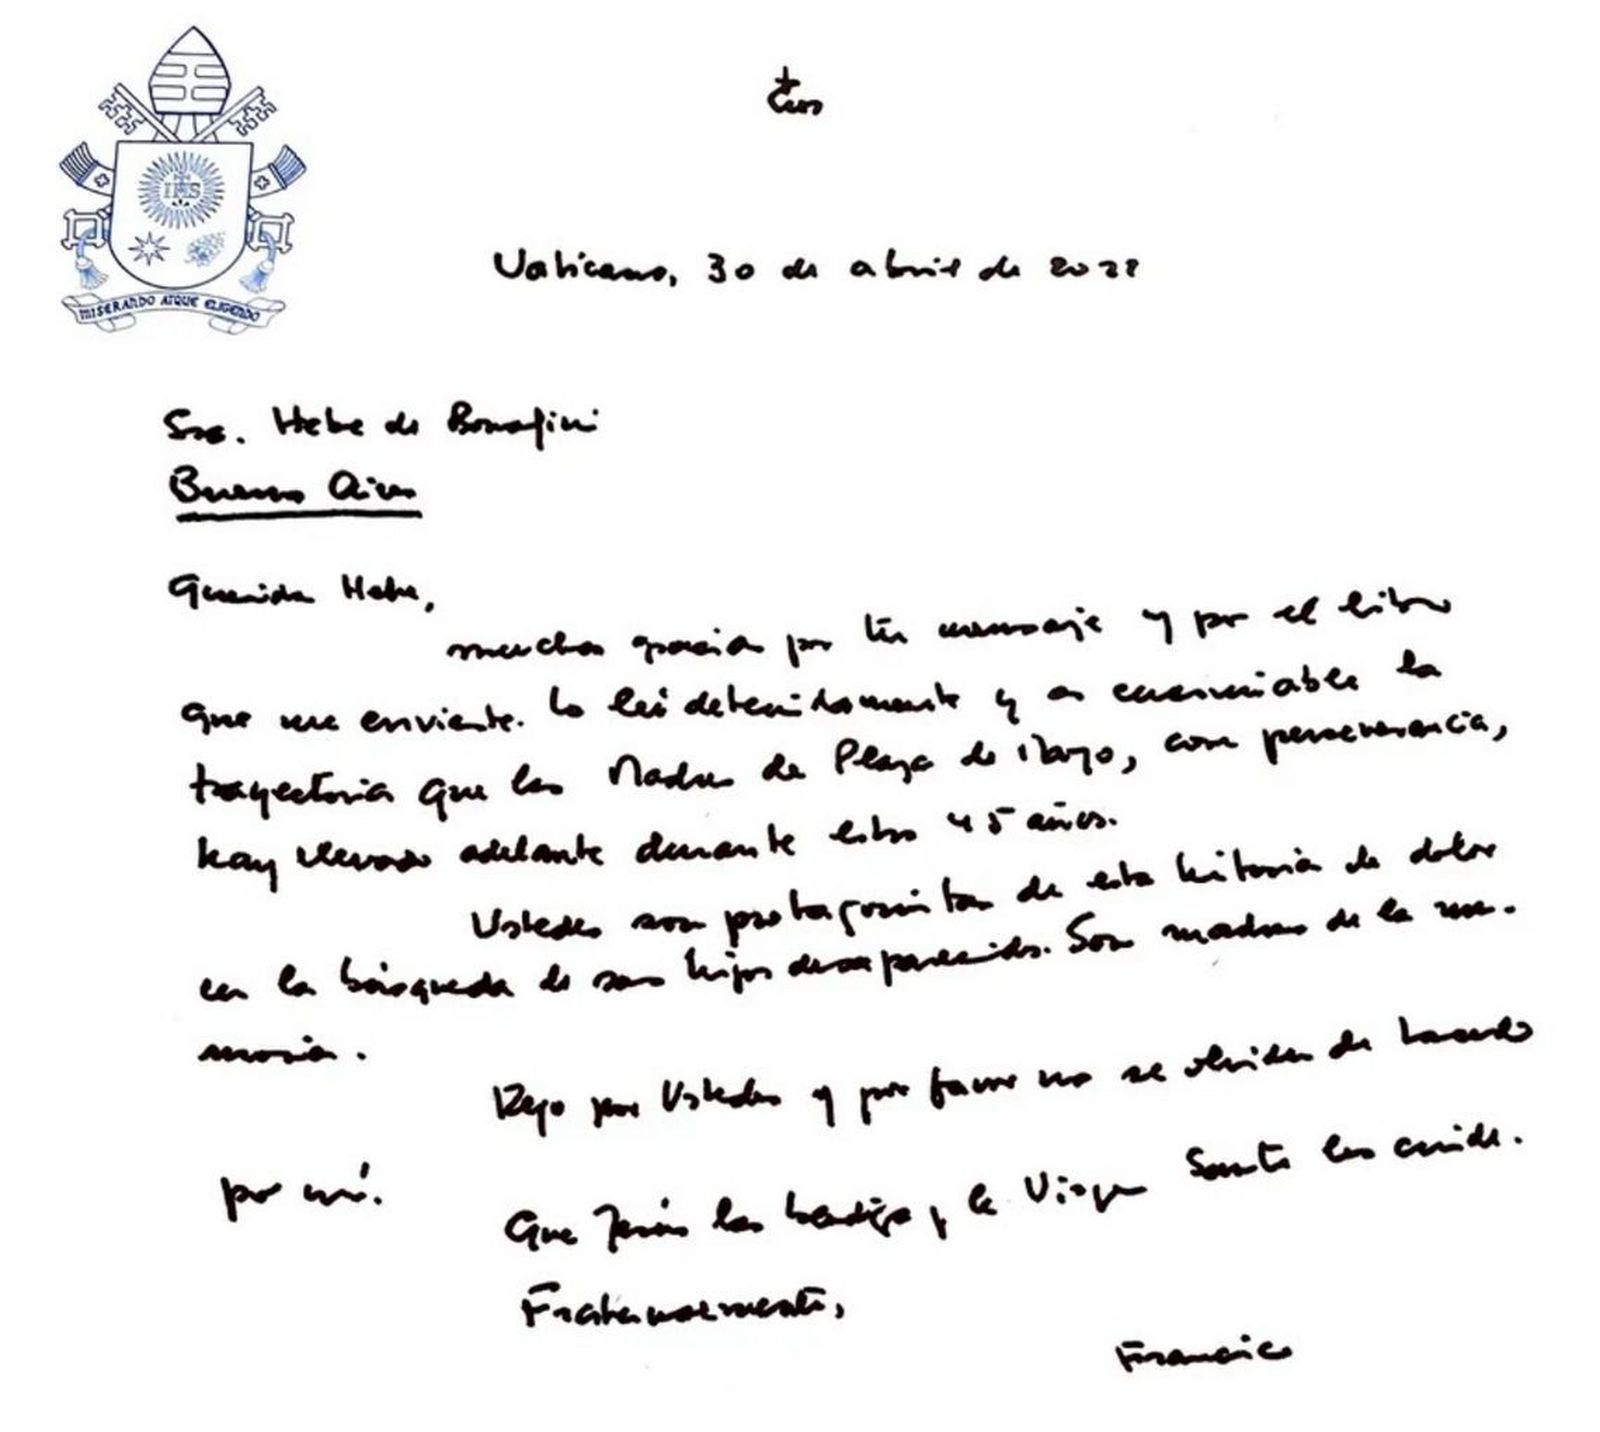 IHS
MISERANDO ATQUE ELIGENDO
Vaticano, 30 de abril de 2022
Sra. Hebe de Bonafini
Buenos Aires
Querida Hebe,
muchas gracias por tu mensaje y por el libro
que me enviaste. Lo leí detenidamente y es la
trayectoria que las Madres de Plaza de Mayo, con perseverancia,
han llevado adelante durante estos 45 años.
Ustedes son protagonistas de esta historia de dolor
en la búsqueda de sus hijos desaparecidos. Son madres de la me-
moria.
Rezo por Ustedes y por favor no se olviden de hacerlo
por mí.
Que Jesús las bendiga y la Virgen Santa las cuide.
Fraternalmente,
Francisco